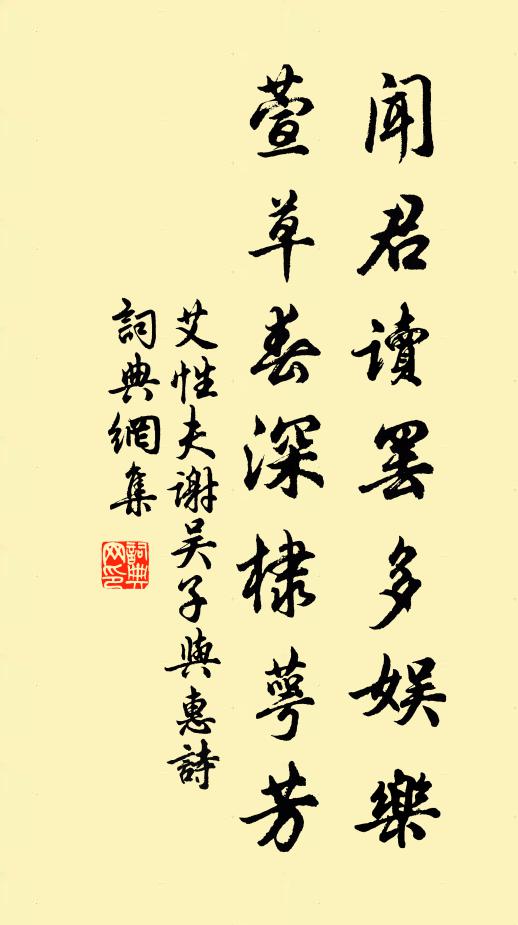 聞君讀罷多娛樂
萱草春深棣萼芳
艾性夫謝吳子與惠詩
詞典網集
詞典网印